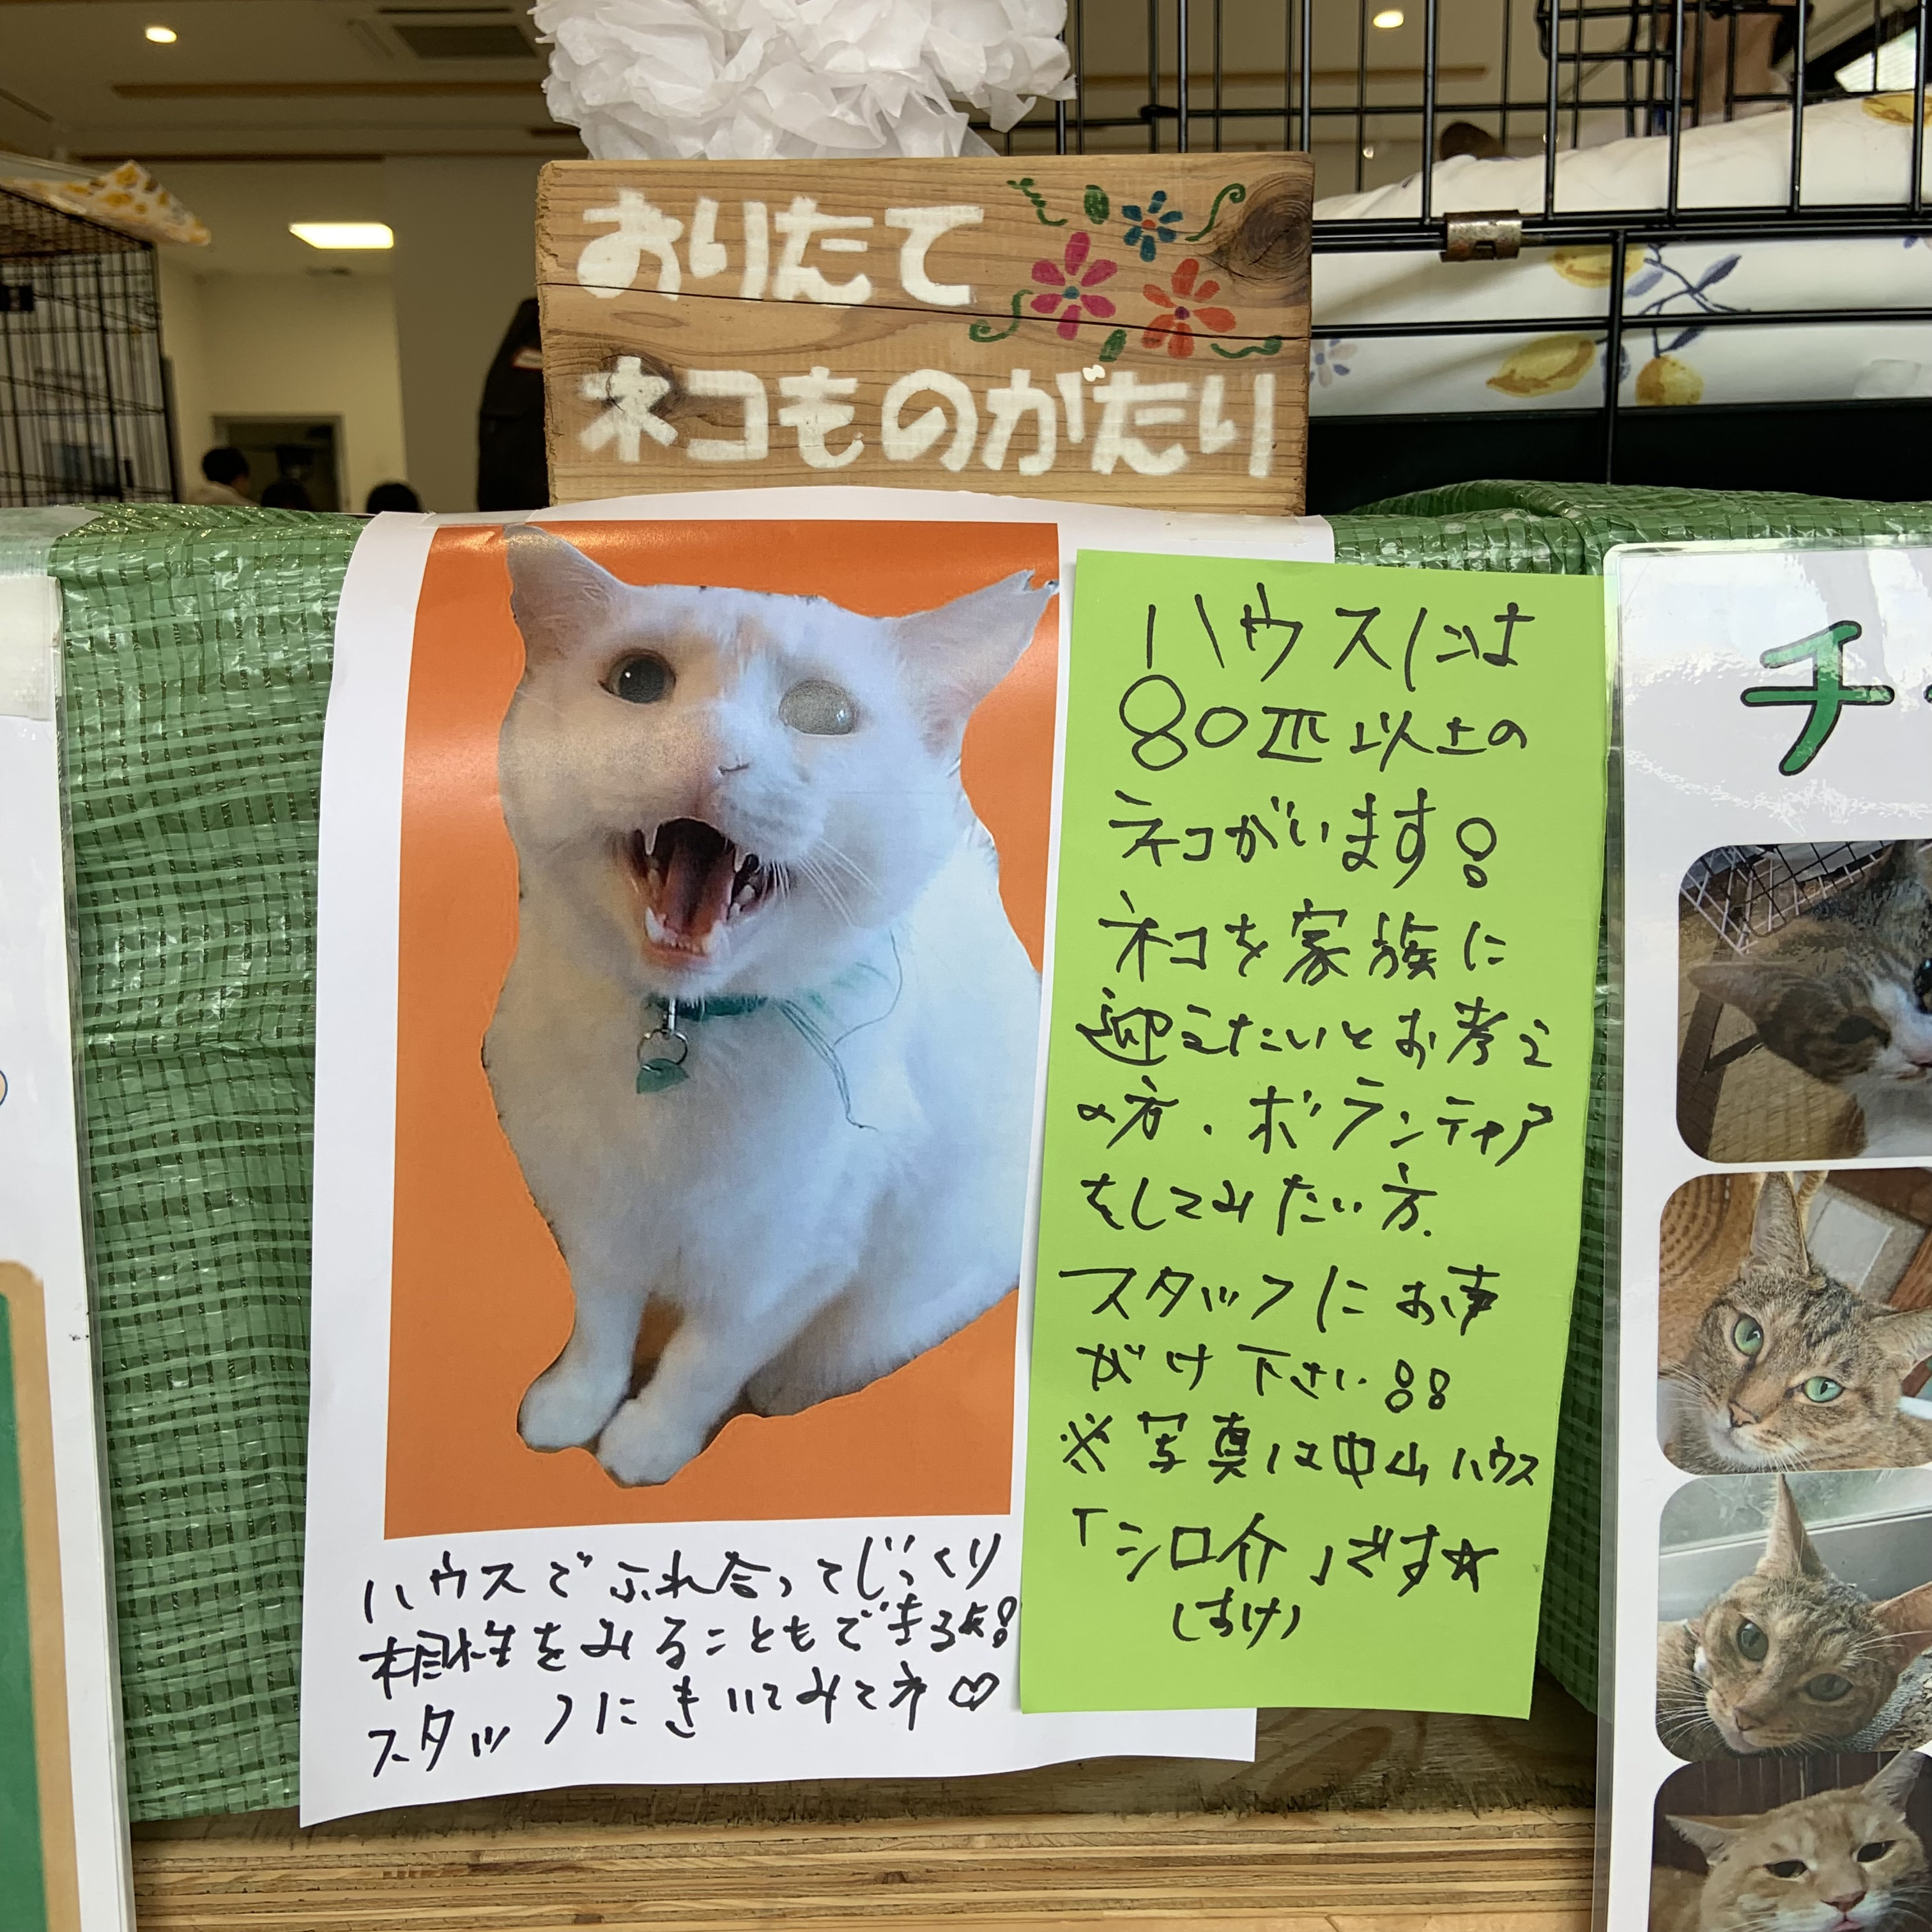 おりたて
ネコものがたり
ハウスには
80匹以上の
ネコがいます!
ネコを家族に
迎えたいとお考え
の方・ボランティア
をしてみたい方、
スタッフにお声
がけ下さい!!
※写真は中山ハウス
「シロ介」です☆
(すけ)
ハウスでふれ合ってじっくり
相性をみることもできるよ!
スタッフにきいてみてネ♡
チ